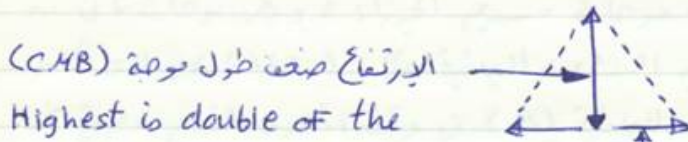 الإرتفاع ضعف طول موجة (CMB)
Highest is double of the